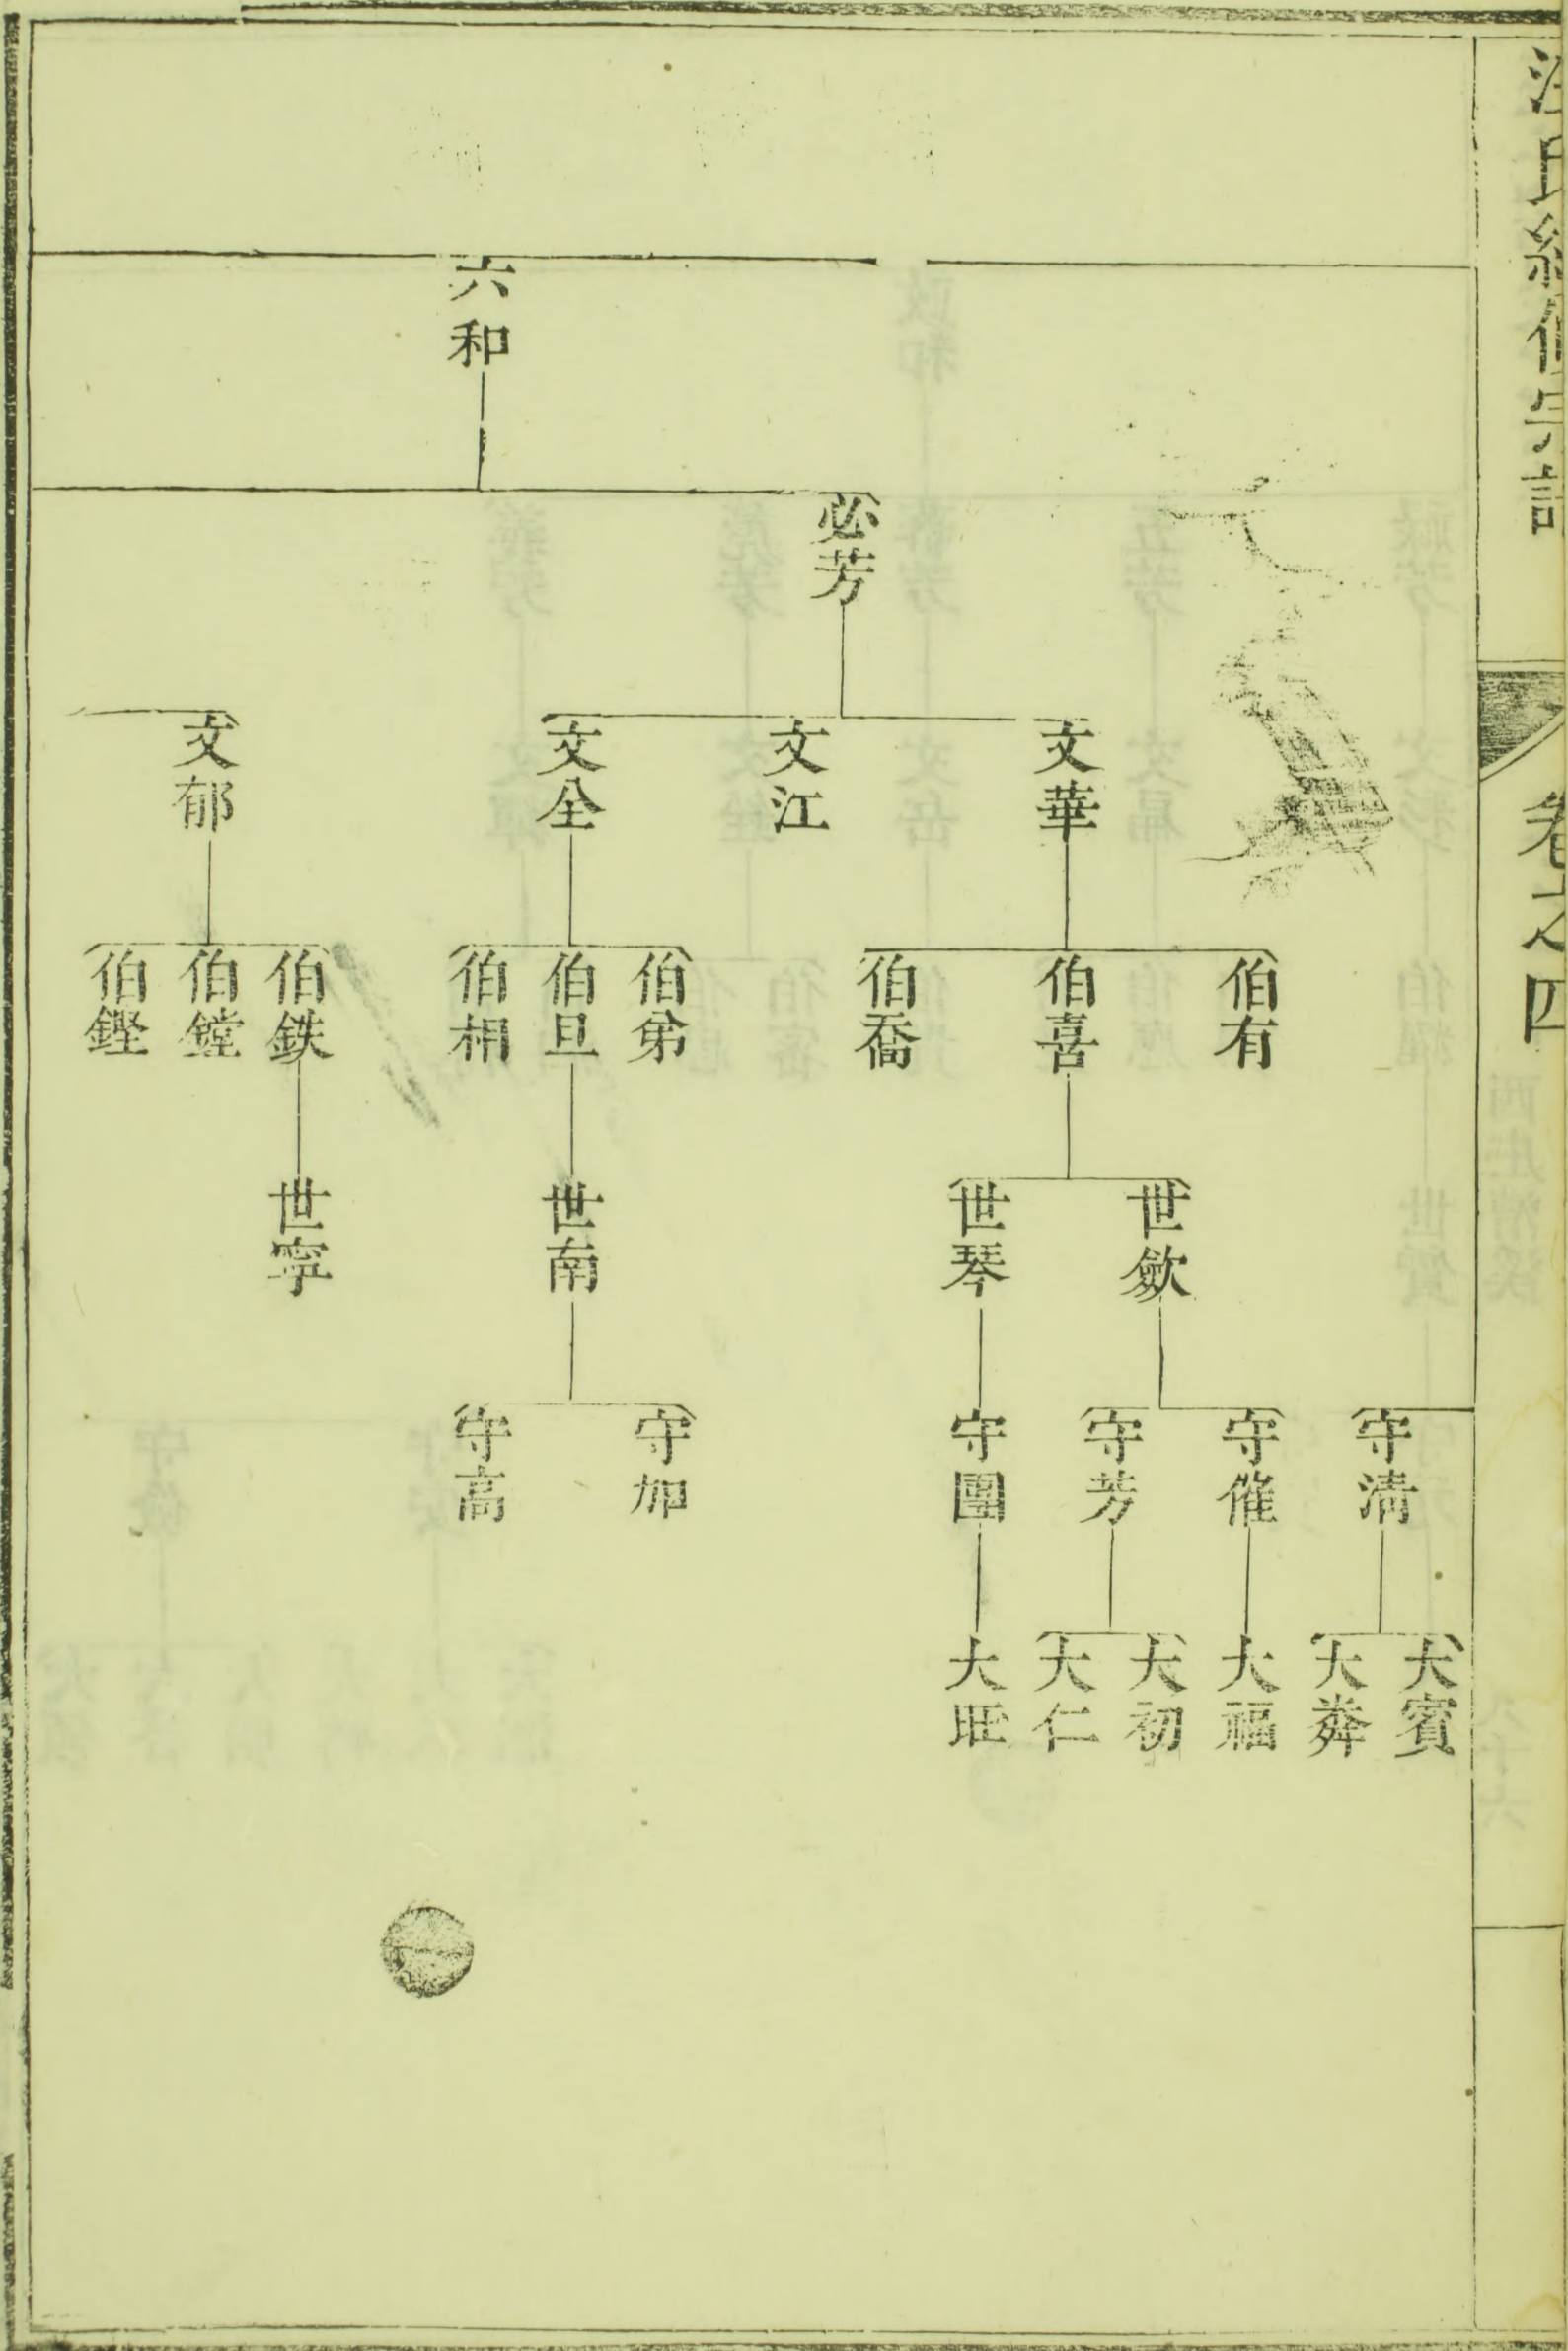 卷之四
六和
必芳
文華
文江
文全
文郁
伯有
伯喜
伯喬
伯弟
伯旦
伯相
伯鉄
伯鏜
伯鏗
世歛
世琴
世南
世寧
守清
守催
守芳
守團
守加
守高
大賓
大粦
大福
大初
大仁
大旺